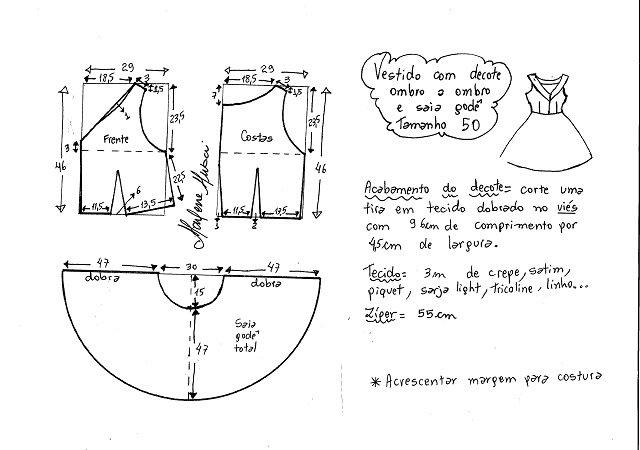 29
18,5
3
1,5
23,5
2
3
46
Frente
22,5
6
11,5
13,5
29
18,5
3
1,5
7
23,5
46
Costas
11,5
13,5
3
2
Marlene Mukai
47
30
47
dobra
dobra
15
47
Saia
godê
total
Vestido com decote
ombro a ombro
e saia godê
Tamanho 50
Acabamento do decote= corte uma
tira em tecido dobrado no viés
com 96cm de comprimento por
45cm de largura.
Tecido= 3m de crepe, satim,
piquet, sarja light, tricoline, linho...
Zíper= 55cm
* Acrescentar margem para costura